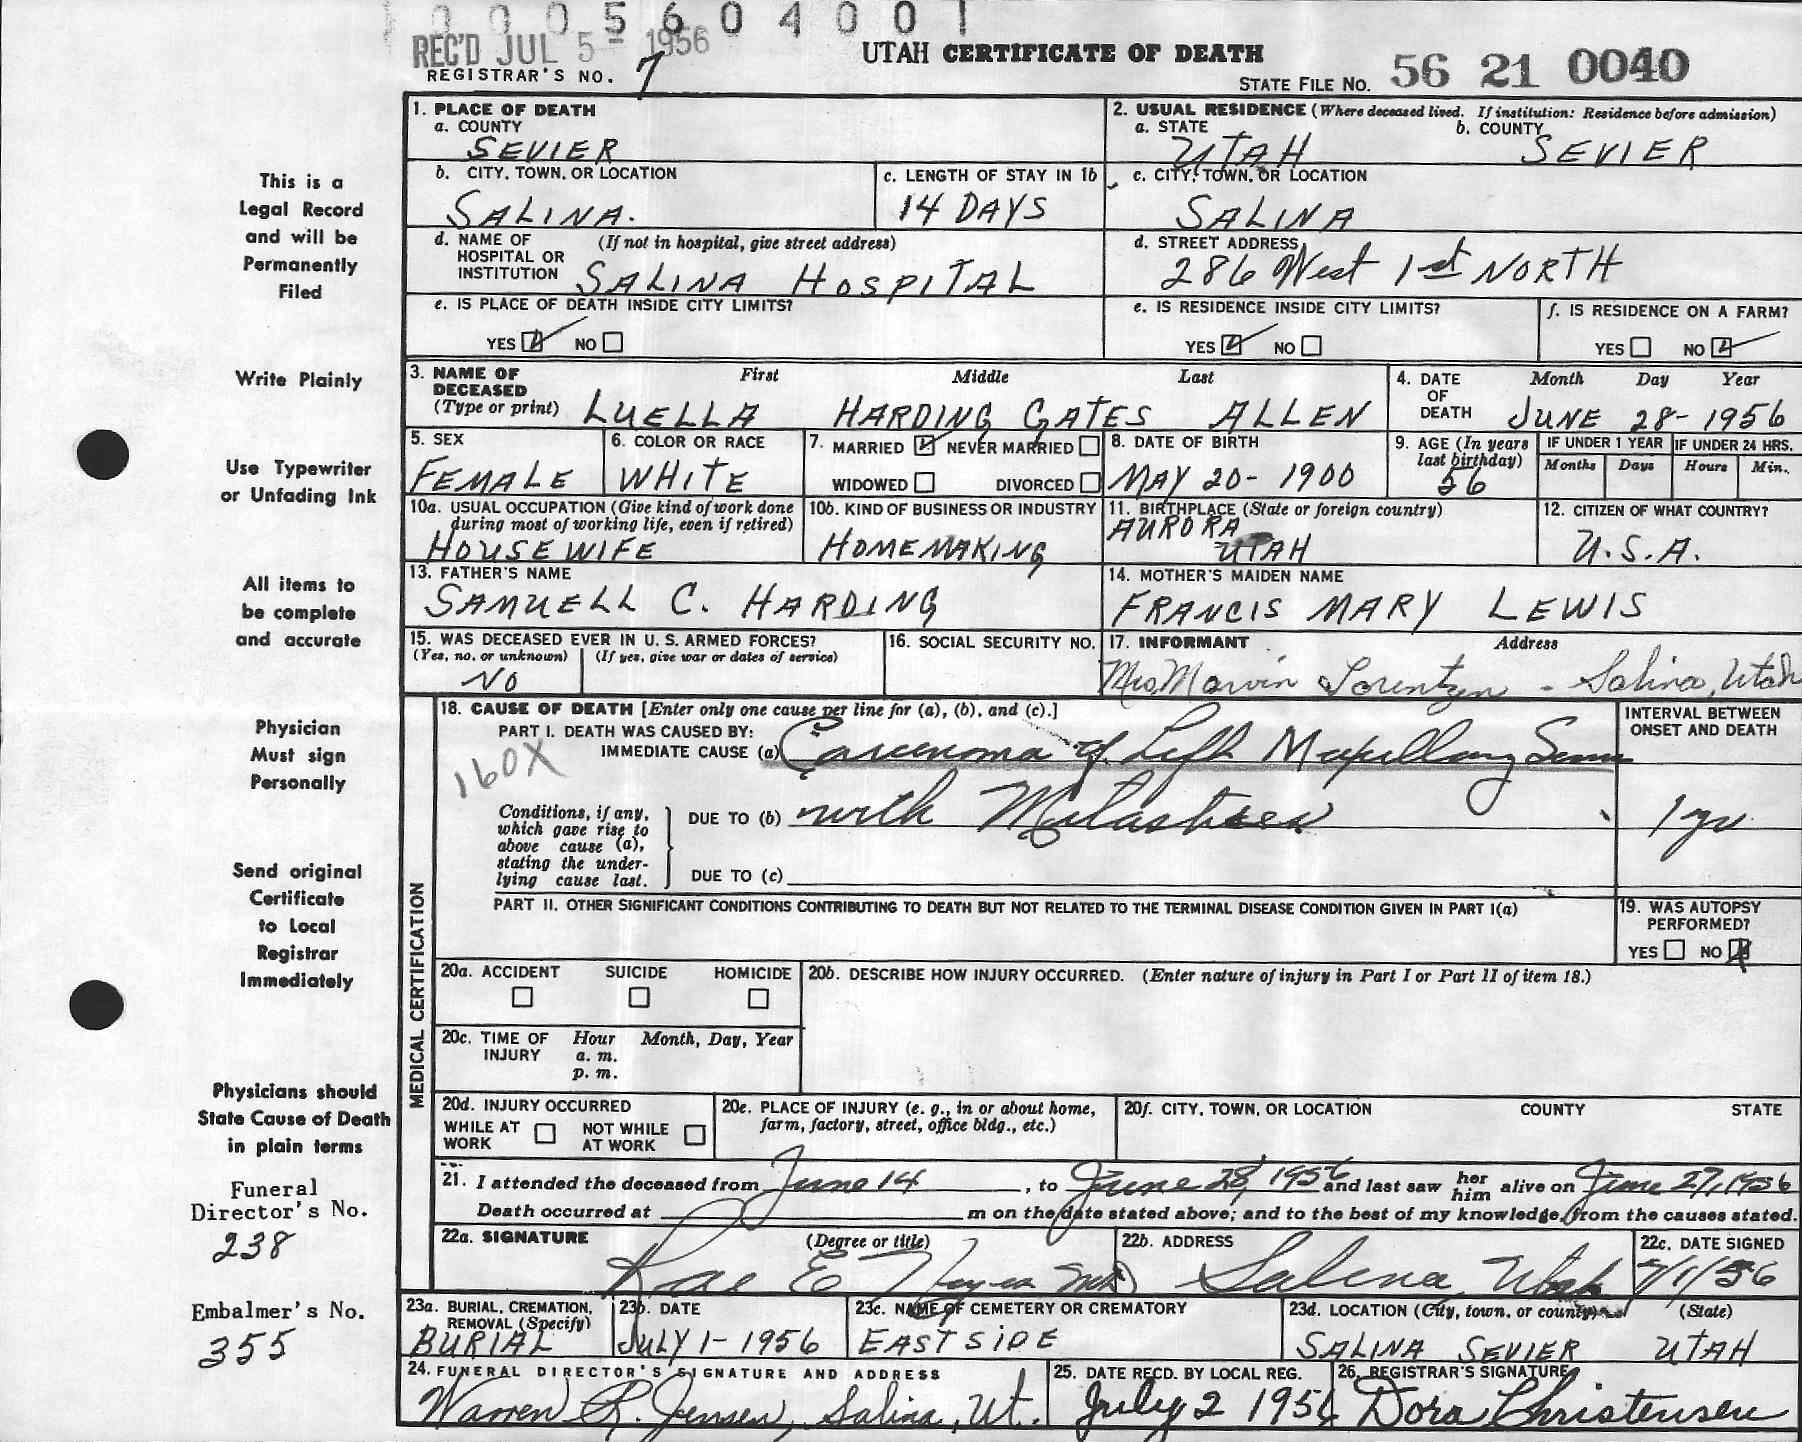 0005604001
REC'D JUL 5 - 1956
REGISTRAR'S NO. 7
UTAH CERTIFICATE OF DEATH
STATE FILE NO. 56 21 0040
This is a
Legal Record
and will be
Permanently
Filed
Write Plainly
Use Typewriter
or Unfading Ink
All items to
be complete
and accurate
Physician
Must sign
Personally
Send original
Certificate
to Local
Registrar
Immediately
Physicians should
State Cause of Death
in plain terms
Funeral
Director's No.
238
Embalmer's No.
355
1. PLACE OF DEATH
a. COUNTY
SEVIER
2. USUAL RESIDENCE (Where deceased lived. If institution: Residence before admission)
a. STATE b. COUNTY
UTAH SEVIER
b. CITY, TOWN, OR LOCATION
SALINA.
c. LENGTH OF STAY IN 1b
14 DAYS
c. CITY, TOWN, OR LOCATION
SALINA
d. NAME OF (If not in hospital, give street address)
HOSPITAL OR
INSTITUTION SALINA HOSPITAL
d. STREET ADDRESS
286 West 1st NORTH
e. IS PLACE OF DEATH INSIDE CITY LIMITS?
YES NO
e. IS RESIDENCE INSIDE CITY LIMITS?
YES NO
f. IS RESIDENCE ON A FARM?
YES NO
3. NAME OF First Middle Last
DECEASED
(Type or print) LUELLA HARDING GATES ALLEN
4. DATE Month Day Year
OF
DEATH JUNE 28-1956
5. SEX
FEMALE
6. COLOR OR RACE
WHITE
7. MARRIED NEVER MARRIED
WIDOWED DIVORCED
8. DATE OF BIRTH
MAY 20-1900
9. AGE (In years
last birthday)
56
IF UNDER 1 YEAR IF UNDER 24 HRS.
Months Days Hours Min.
10a. USUAL OCCUPATION (Give kind of work done
during most of working life, even if retired)
HOUSEWIFE
10b. KIND OF BUSINESS OR INDUSTRY
HOMEMAKING
11. BIRTHPLACE (State or foreign country)
AURORA
UTAH
12. CITIZEN OF WHAT COUNTRY?
U.S.A.
13. FATHER'S NAME
SAMUELL C. HARDING
14. MOTHER'S MAIDEN NAME
FRANCIS MARY LEWIS
15. WAS DECEASED EVER IN U. S. ARMED FORCES?
(Yes, no, or unknown) (If yes, give war or dates of service)
NO
16. SOCIAL SECURITY NO.
17. INFORMANT Address
Mrs Marvin Lorentzen - Salina, Utah
MEDICAL CERTIFICATION
18. CAUSE OF DEATH [Enter only one cause per line for (a), (b), and (c).]
PART I. DEATH WAS CAUSED BY:
IMMEDIATE CAUSE (a) Carcinoma of Left Maxillary Sinus
160X
INTERVAL BETWEEN
ONSET AND DEATH
Conditions, if any,
which gave rise to
above cause (a),
stating the under-
lying cause last.
DUE TO (b) with Metastases
1 yr
DUE TO (c)
PART II. OTHER SIGNIFICANT CONDITIONS CONTRIBUTING TO DEATH BUT NOT RELATED TO THE TERMINAL DISEASE CONDITION GIVEN IN PART I(a)
19. WAS AUTOPSY
PERFORMED?
YES NO
20a. ACCIDENT SUICIDE HOMICIDE
20b. DESCRIBE HOW INJURY OCCURRED. (Enter nature of injury in Part I or Part II of item 18.)
20c. TIME OF Hour Month, Day, Year
INJURY a. m.
p. m.
20d. INJURY OCCURRED
WHILE AT NOT WHILE
WORK AT WORK
20e. PLACE OF INJURY (e. g., in or about home,
farm, factory, street, office bldg., etc.)
20f. CITY, TOWN, OR LOCATION COUNTY STATE
21. I attended the deceased from June 14, to June 28, 1956 and last saw her him alive on June 27, 1956
Death occurred at m on the date stated above; and to the best of my knowledge, from the causes stated.
22a. SIGNATURE (Degree or title)
Rae E
22b. ADDRESS
Salina, Utah
22c. DATE SIGNED
7/1/56
23a. BURIAL, CREMATION,
REMOVAL (Specify)
BURIAL
23b. DATE
JULY 1-1956
23c. NAME OF CEMETERY OR CREMATORY
EAST SIDE
23d. LOCATION (City, town, or county) (State)
SALINA SEVIER UTAH
24. FUNERAL DIRECTOR'S SIGNATURE AND ADDRESS
Warren R. Jensen, Salina, Ut.
25. DATE RECD. BY LOCAL REG.
July 2 1956
26. REGISTRAR'S SIGNATURE
Dora Christensen